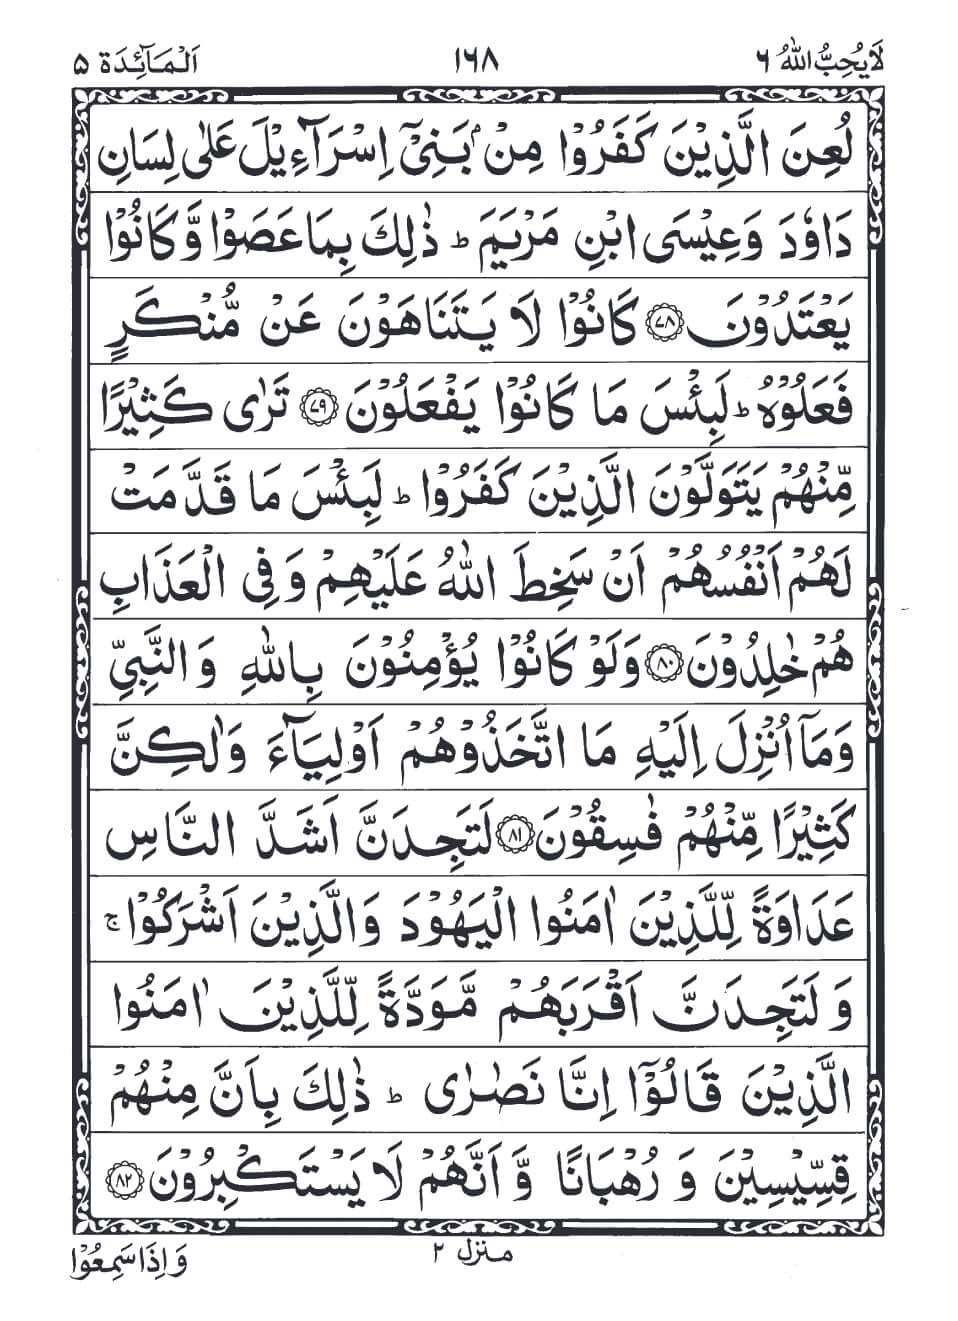 لَا يُحِبُّ اللّٰهُ ٦
١٦٨
اَلْمَآئِدَة ٥
لُعِنَ الَّذِيْنَ كَفَرُوْا مِنْۢ بَنِيْۤ اِسْرَآءِيْلَ عَلٰى لِسَانِ
دَاوٗدَ وَعِيْسَى ابْنِ مَرْيَمَ ؕ ذٰلِكَ بِمَا عَصَوْا وَّكَانُوْا
يَعْتَدُوْنَ ﴿٧٨﴾ كَانُوْا لَا يَتَنَاهَوْنَ عَنْ مُّنْكَرٍ
فَعَلُوْهُ ؕ لَبِئْسَ مَا كَانُوْا يَفْعَلُوْنَ ﴿٧٩﴾ تَرٰى كَثِيْرًا
مِّنْهُمْ يَتَوَلَّوْنَ الَّذِيْنَ كَفَرُوْا ؕ لَبِئْسَ مَا قَدَّمَتْ
لَهُمْ اَنْفُسُهُمْ اَنْ سَخِطَ اللّٰهُ عَلَيْهِمْ وَفِى الْعَذَابِ
هُمْ خٰلِدُوْنَ ﴿٨٠﴾ وَلَوْ كَانُوْا يُؤْمِنُوْنَ بِاللّٰهِ وَالنَّبِيِّ
وَمَاۤ اُنْزِلَ اِلَيْهِ مَا اتَّخَذُوْهُمْ اَوْلِيَآءَ وَلٰكِنَّ
كَثِيْرًا مِّنْهُمْ فٰسِقُوْنَ ﴿٨١﴾ لَتَجِدَنَّ اَشَدَّ النَّاسِ
عَدَاوَةً لِّلَّذِيْنَ اٰمَنُوا الْيَهُوْدَ وَالَّذِيْنَ اَشْرَكُوْا ۚ
وَلَتَجِدَنَّ اَقْرَبَهُمْ مَّوَدَّةً لِّلَّذِيْنَ اٰمَنُوا
الَّذِيْنَ قَالُوْۤا اِنَّا نَصٰرٰى ؕ ذٰلِكَ بِاَنَّ مِنْهُمْ
قِسِّيْسِيْنَ وَرُهْبَانًا وَّاَنَّهُمْ لَا يَسْتَكْبِرُوْنَ ﴿٨٢﴾
منزل ٢
وَاِذَا سَمِعُوْا